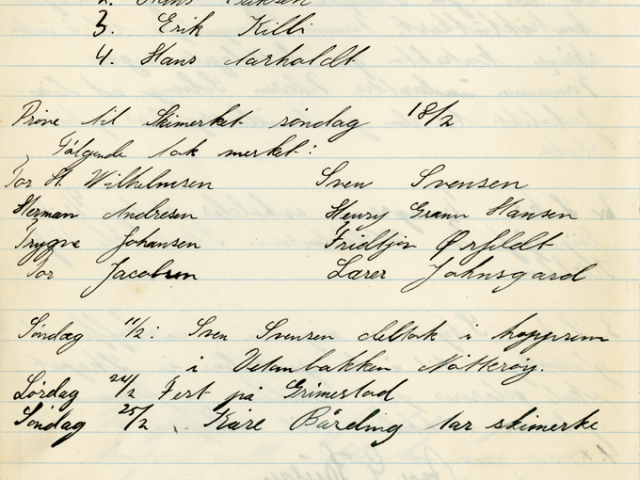 3. Erik Killi
4. Hans Aarholdt
Prøve til Skimerket søndag 18/2
Følgende tok merket:
Tor H. Wilhelmsen Sven Svensen
Herman Andresen Henry Grann Hansen
Trygve Johansen Fridtjof Ørfeldt
Tor Jacobsen Lærer Johnsgard
Søndag 11/2: Sven Svensen deltok i hopprenn
i Vetanbakken Nøtterøy.
Lørdag 24/2 Fest på Grimestad
Søndag 25/2. Kåre Bårding tar skimerke